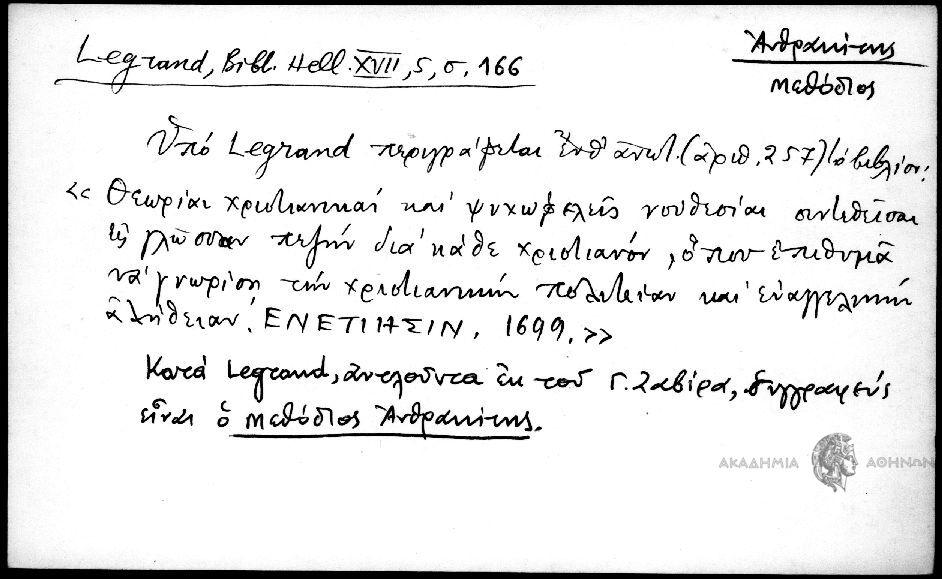 Legrand, Bibl. Hell. XVII, 5, σ. 166
Ἀνθρακίτης
Μεθόδιος
Ὑπό Legrand περιγράφεται (ἀριθ. 257) τό βιβλίον:
<< Θεωρίαι χριστιανικαί καί ψυχωφελεῖς νουθεσίαι συντεθεῖσαι
εἰς γλῶσσαν πεζήν διά κάθε χριστιανόν, ὅπου ἐπιθυμᾶ
νά γνωρίση τήν χριστιανικήν πολιτείαν καί εὐαγγελικήν
ἀλήθειαν. ΕΝΕΤΙΗΣΙΝ, 1699. >>
Κατά Legrand, ἀντλοῦντα ἐκ τοῦ Γ. Ζαβίρα, συγγραφεύς
εἶναι ὁ Μεθόδιος Ἀνθρακίτης.
ΑΚΑΔΗΜΙΑ ΑΘΗΝΩΝ